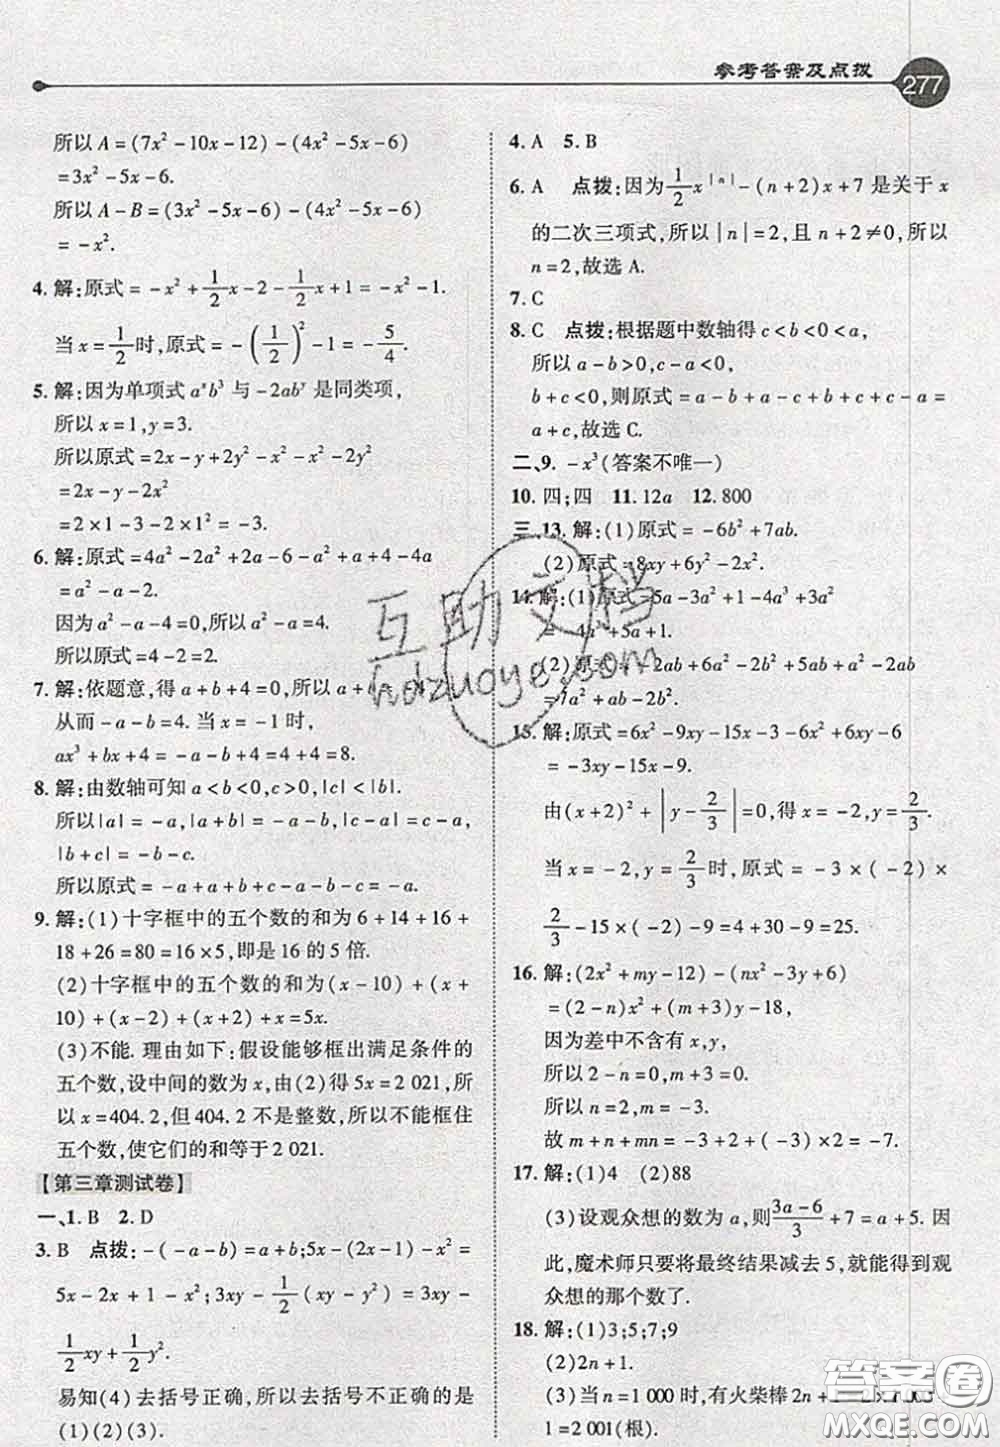 参考答案及点拨
277
所以 A=(7x²-10x-12)-(4x²-5x-6)
=3x²-5x-6.
所以 A-B=(3x²-5x-6)-(4x²-5x-6)
=-x².
4. 解:原式=-x²+1/2x-2-1/2x+1=-x²-1.
当 x=1/2时,原式=-(1/2)²-1=-5/4.
5. 解:因为单项式 aˣb³ 与 -2abʸ 是同类项,
所以 x=1,y=3.
所以原式=2x-y+2y²-x²-x²-2y²
=2x-y-2x²
=2×1-3-2×1²=-3.
6. 解:原式=4a²-2a²+2a-6-a²+a+4-4a
=a²-a-2.
因为 a²-a-4=0,所以 a²-a=4.
所以原式=4-2=2.
7. 解:依题意,得 a+b+4=0,所以 a+
从而-a-b=4. 当 x=-1 时,
ax³+bx+4=-a-b+4=4+4=8.
8. 解:由数轴可知 a<b<0,c>0,|c|<|b|.
所以|a|=-a,|a+b|=-a-b,|c-a|=c-a,
|b+c|=-b-c.
所以原式=-a+a+b+c-a-b-c=-a.
9. 解:(1)十字框中的五个数的和为 6+14+16+
18+26=80=16×5,即是 16 的 5 倍.
(2)十字框中的五个数的和为(x-10)+(x+
10)+(x-2)+(x+2)+x=5x.
(3)不能. 理由如下:假设能够框出满足条件的
五个数,设中间的数为 x,由(2)得 5x=2 021,所
以 x=404.2,但 404.2 不是整数,所以不能框住
五个数,使它们的和等于 2 021.
【第三章测试卷】
一、1. B 2. D
3. B 点拨:-(-a-b)=a+b;5x-(2x-1)-x²=
5x-2x+1-x²;3xy-1/2(xy-y²)=3xy-
1/2xy+1/2y².
易知(4)去括号正确,所以去括号不正确的是
(1)(2)(3).
4. A 5. B
6. A 点拨:因为1/2x|ⁿ|-(n+2)x+7 是关于 x
的二次三项式,所以|n|=2,且 n+2≠0,所以
n=2,故选 A.
7. C
8. C 点拨:根据题中数轴得 c<b<0<a,
所以 a-b>0,c-a<0,
b+c<0,则原式=a-b+a-c+b+c-a=
a+c,故选 C.
二、9. -x³(答案不唯一)
10. 四;四 11. 12a 12. 800
三、13. 解:(1)原式=-6b²+7ab.
(2)原式=8xy+6y²-2x².
14. 解:(1)原式=5a-3a²+1-4a³+3a²
=-4a³+5a+1.
(2)原式=-2ab+6a²-2b²+5ab+a²-2ab
=7a²+ab-2b².
15. 解:原式=6x²-9xy-15x-3-6x²+6xy-6
=-3xy-15x-9.
由(x+2)²+|y-2/3|=0,得 x=-2,y=2/3.
当 x=-2,y=2/3时,原式=-3×(-2)×
2/3-15×(-2)-9=4+30-9=25.
16. 解:(2x²+my-12)-(nx²-3y+6)
=(2-n)x²+(m+3)y-18,
因为差中不含有 x,y,
所以 2-n=0,m+3=0.
所以 n=2,m=-3.
故 m+n+mn=-3+2+(-3)×2=-7.
17. 解:(1)4 (2)88
(3)设观众想的数为 a,则(3a-6)/3+7=a+5. 因
此,魔术师只要将最终结果减去 5,就能得到观
众想的那个数了.
18. 解:(1)3;5;7;9
(2)2n+1.
(3)当 n=1 000 时,有火柴棒 2n+1=2×1 000+
1=2 001(根).
互助文档
hdzuoye.com
答案圈
MXQE.COM